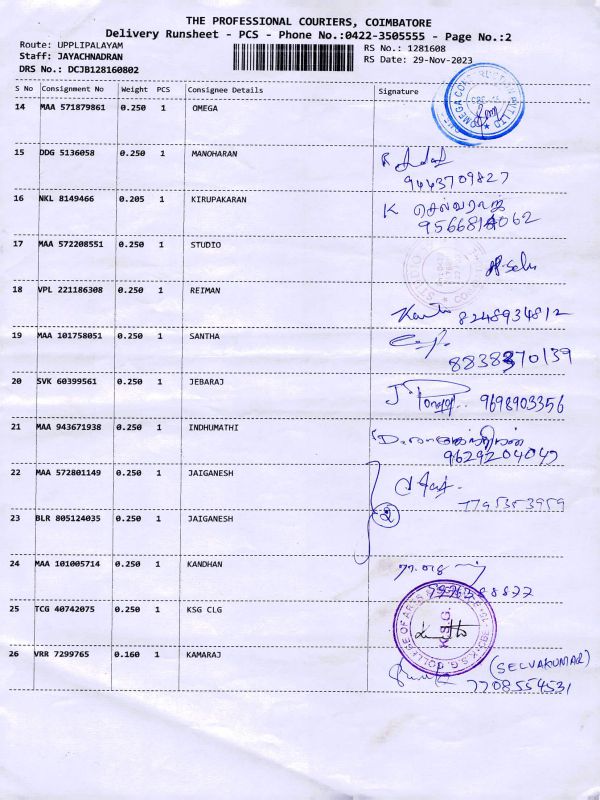 THE PROFESSIONAL COURIERS, COIMBATORE
Delivery Runsheet - PCS - Phone No.:0422-3505555 - Page No.:2
Route: UPPLIPALAYAM
RS No.: 1281608
Staff: JAYACHNADRAN
RS Date: 29-Nov-2023
DRS No.: DCJB128160802
S No Consignment No Weight PCS Consignee Details Signature
14 MAA 571879861 0.250 1 OMEGA
15 DDG 5136058 0.250 1 MANOHARAN
9443709827
16 NKL 8149466 0.205 1 KIRUPAKARAN K செல்வராஜ
17 MAA 572208551 0.250 1 STUDIO
18 VPL 221186308 0.250 1 REIMAN
8248934812
19 MAA 101758051 0.250 1 SANTHA
8838370139
20 SVK 60399561 0.250 1 JEBARAJ
9698903356
21 MAA 943671938 0.250 1 INDHUMATHI
22 MAA 572801149 0.250 1 JAIGANESH
7795353959
23 BLR 805124035 0.250 1 JAIGANESH
2
24 MAA 101005714 0.250 1 KANDHAN
25 TCG 40742075 0.250 1 KSG CLG
K.S.G. COLLEGE OF ARTS
26 VRR 7299765 0.160 1 KAMARAJ (SELVAKUMAR)
7708554531